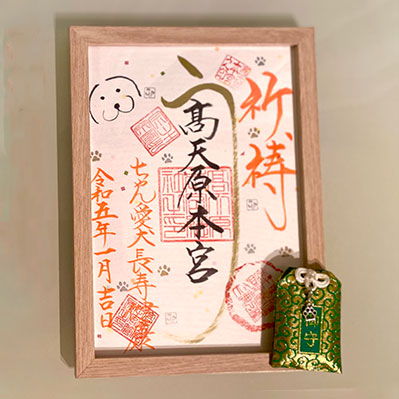 祈祷
髙天原本宮
ちゃん愛犬長寿健康
令和五年一月吉日
守